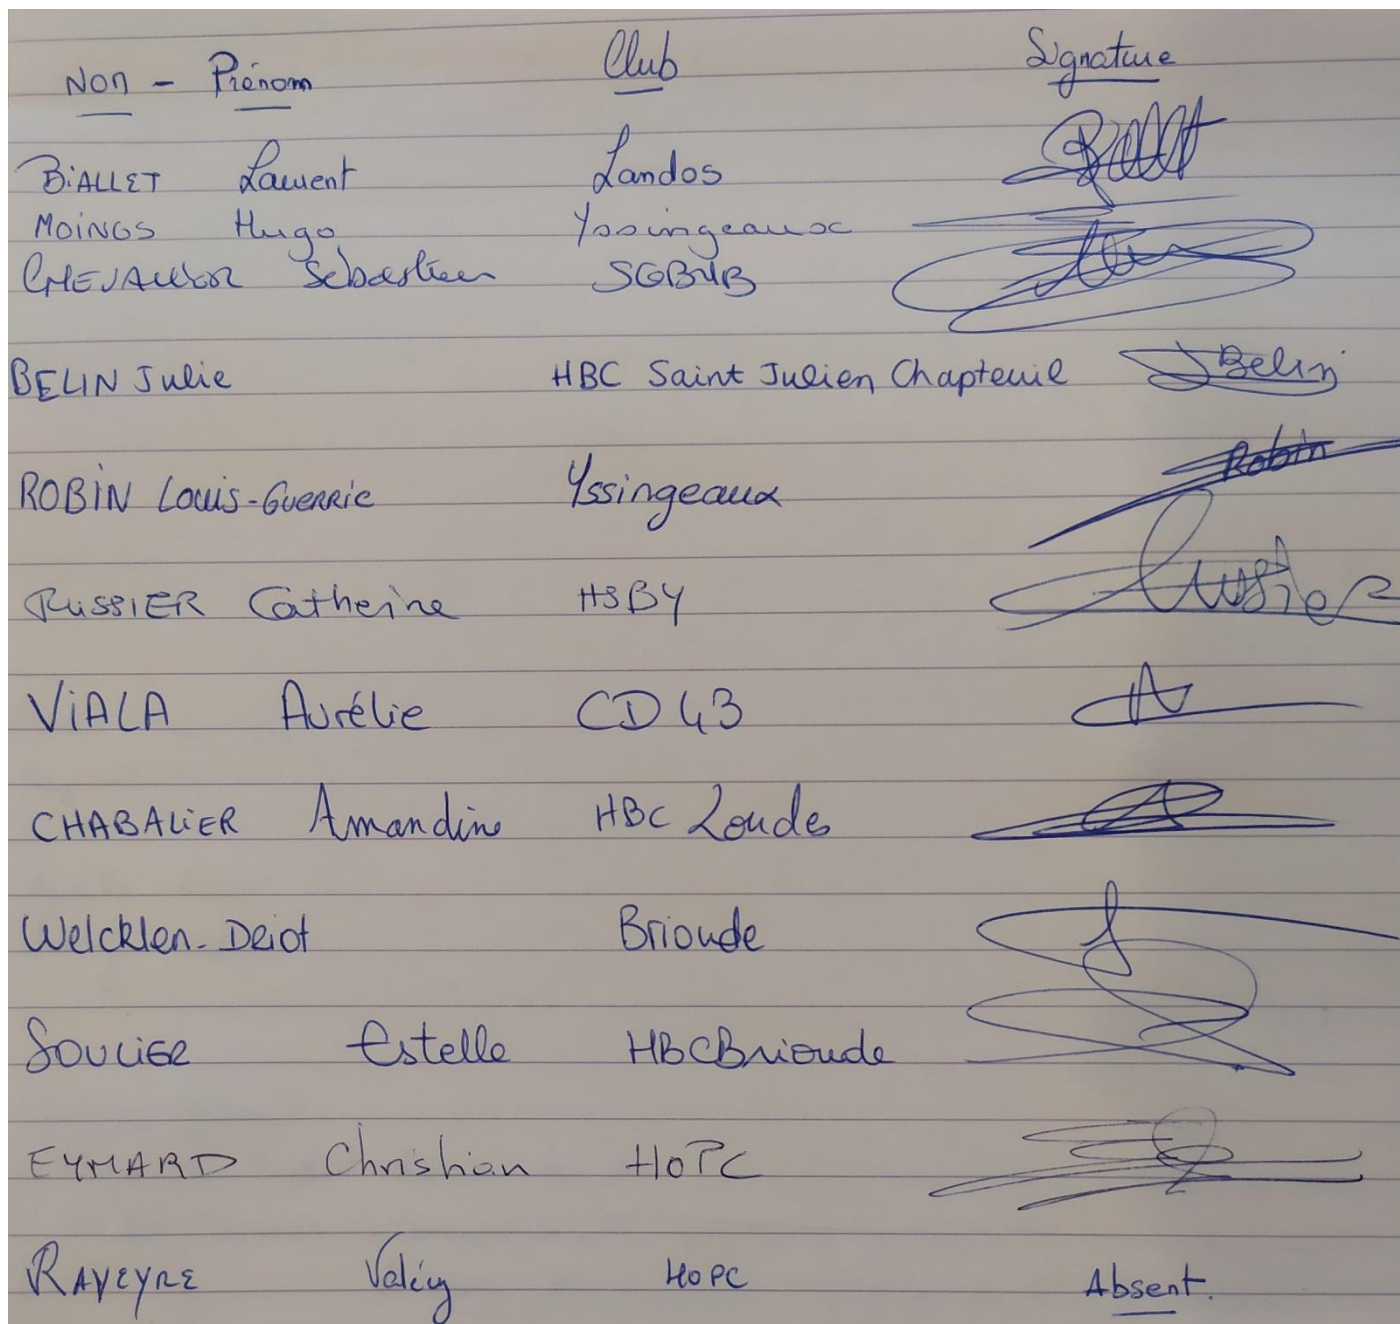 NOM - Prénom Club Signature
BIALLET Laurent Landos
MOINGS Hugo Yssingeaux
CHEVALLIER Sébastien SGB4B
BELIN Julie HBC Saint Julien Chapteuil JBelin
ROBIN Louis-Guerric Yssingeaux Robin
RUSSIER Catherine HSBY Russier
VIALA Aurélie CD 43
CHABALIER Amandine HBC Loudes
Welcklen-Deiot Brioude
SOULIER Estelle HBCBrioude
EYMARD Christian HOPC
RAVEYRE HOPC Absent.